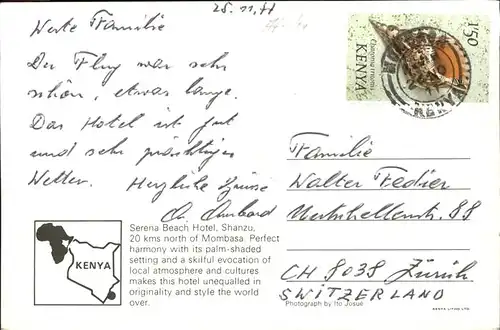 25.11.71
Werte Familie
Der Flug war sehr
schön, etwas lange.
Das Hotel ist gut
und sehr prächtiges
Wetter. Herzliche Grüsse
1'50
KENYA
Familie
Walter Fedier
88
CH 8038 Zürich
SWITZERLAND
KENYA
Serena Beach Hotel, Shanzu,
20 kms north of Mombasa. Perfect
harmony with its palm-shaded
setting and a skilful evocation of
local atmosphere and cultures
makes this hotel unequalled in
originality and style the world
over.
Photograph by Ito Josué
KENYA LITHO LTD.